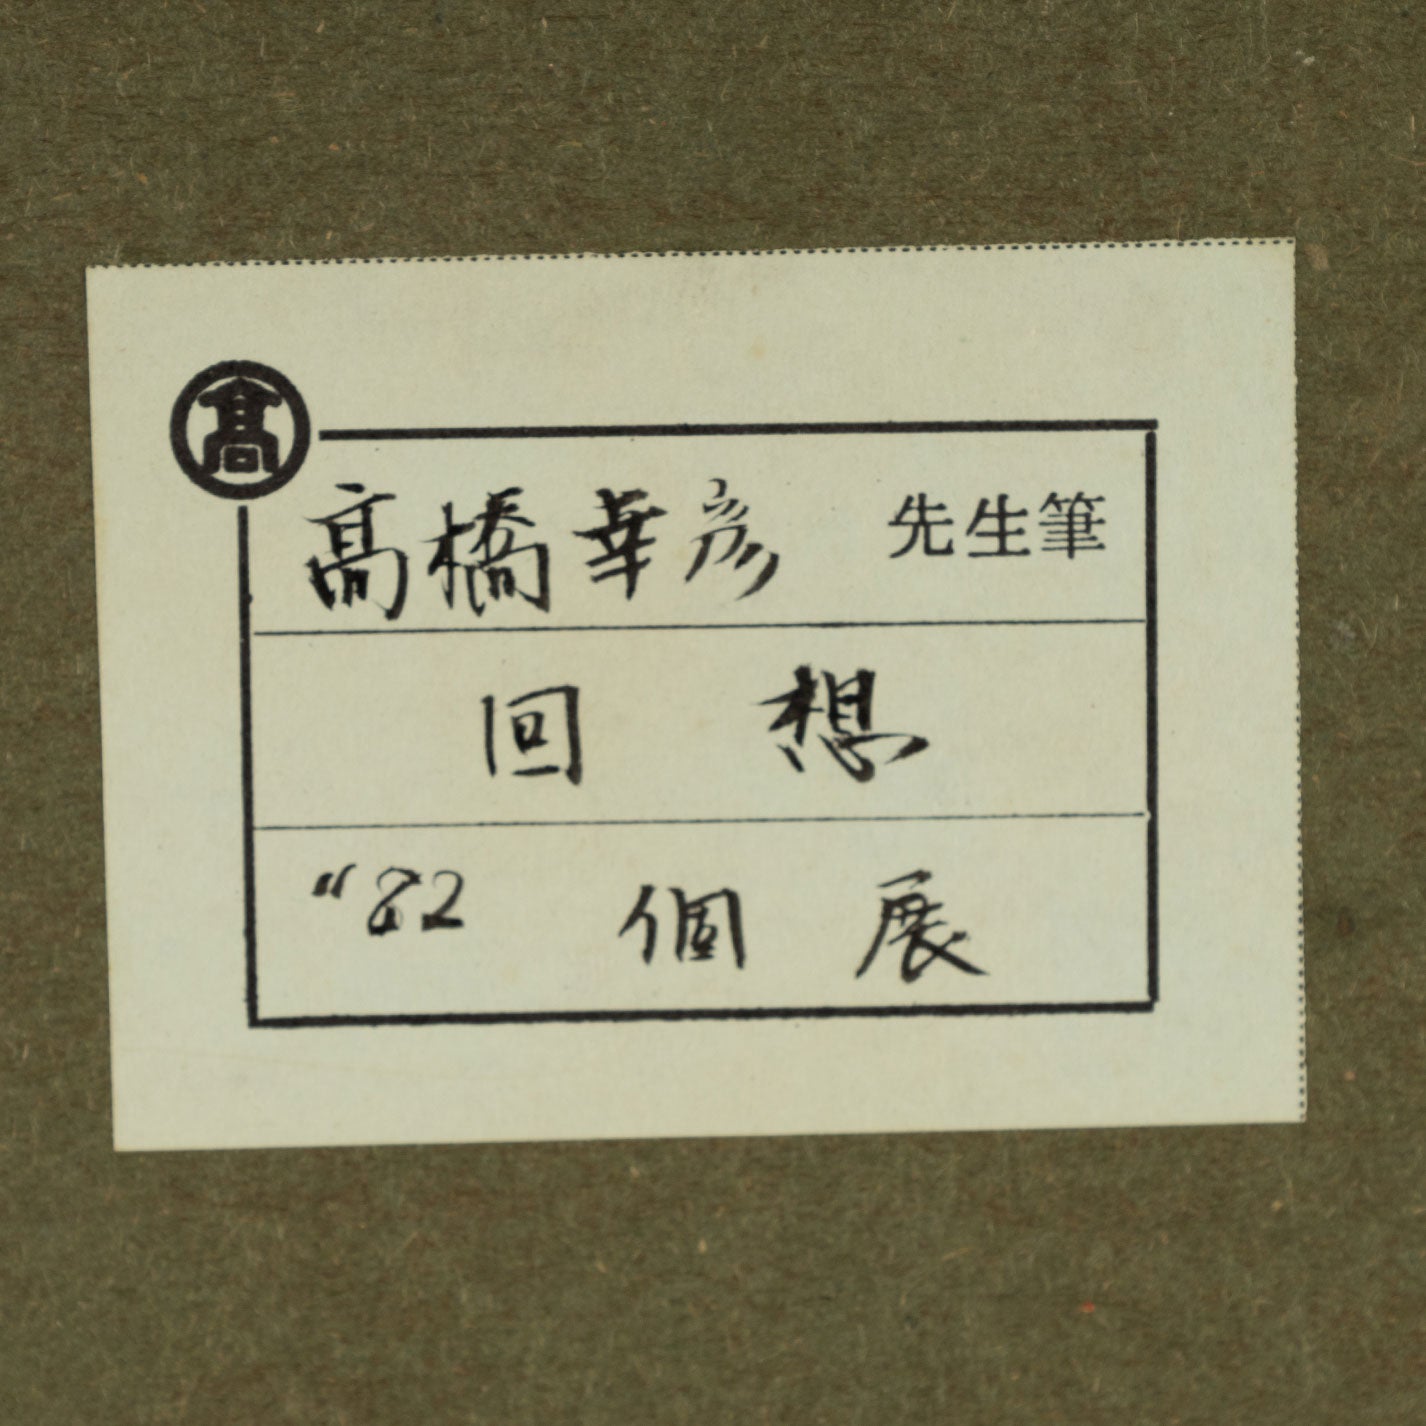 髙
髙橋幸彦 先生筆
回想
"82 個展